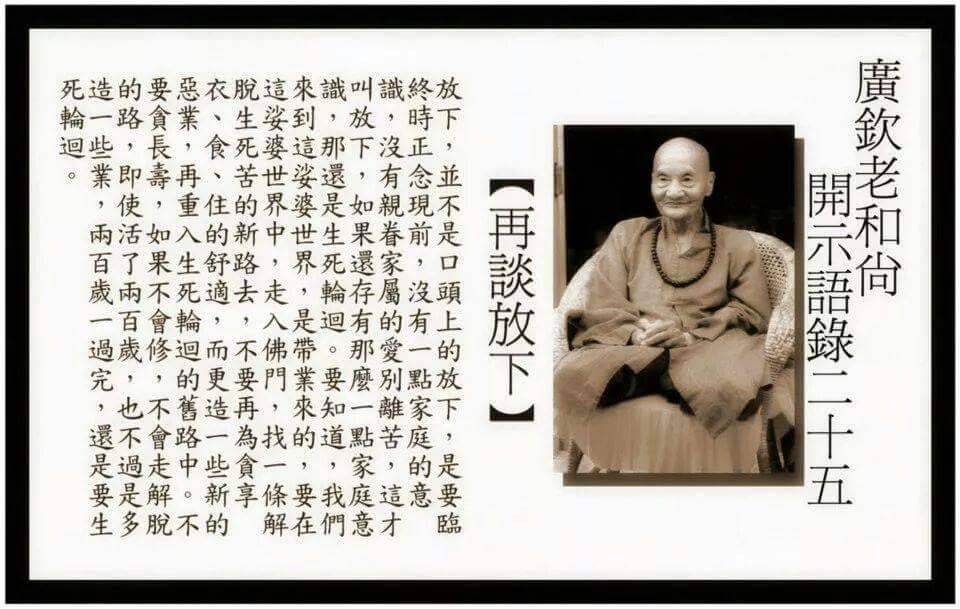 廣欽老和尚
開示語錄二十五
【再談放下】
放下，並不是口頭上的放下，是要臨
終時正念現前，沒有一點家庭的意
識，沒有親眷家屬的愛別離苦，這才
叫放下，如果還存有那麼一點家庭意
識，那還是生死輪迴。要知道，我們
來到這娑婆世界，是帶業來的，要在
這娑婆世界中，走入佛門，找一條解
脫生死苦的新路去，不要再為貪享
衣、食、住的舒適，而更造一些新的
惡業，再重入生死輪迴的舊路中。不
要貪長壽，如果不會修，不會走解脫
的路，即使活了兩百歲，也不過是多
造一些業，兩百歲一過完，還是要生
死輪迴。